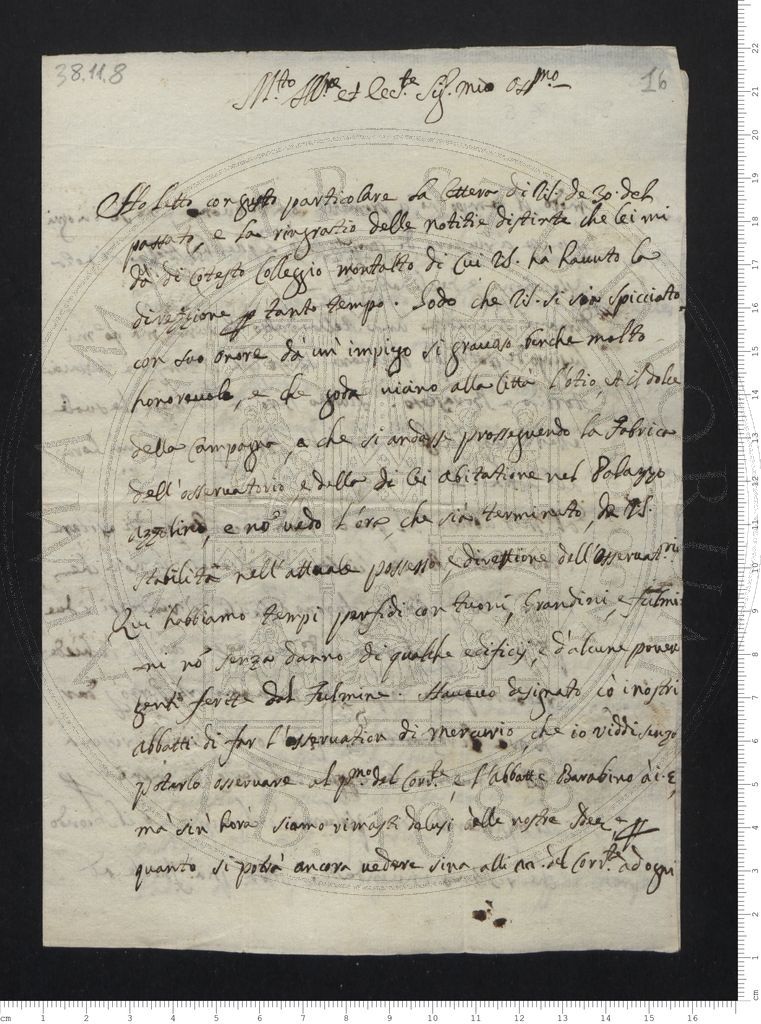 38.11.8
16
M.to Ill.re et Ecc.te Sig. mio oss.mo
Hò letto con gusto particolare la lettera di VS. de 30. del
passato, e la ringratio delle notitie distinte che lei mi
dà di cotesto Colleggio Montalto di cui VS. hà hauuto la
direzzione p tanto tempo. Lodo che VS. si sia spicciato
con suo onore dà un' impiego si grauoso benche molto
honoreuole, e che goda uicino alla Città l'otio, et il dolce
della Campagna, e che si andasse prosseguendo la Fabrica
dell'osseruatorio, e della di lei abitatione nel Palazzo
Azzolino, e nō uedo l'ora, che sia terminato, e VS.
stabilita nell'attuale possesso, e direttione dell'Osseruat.rio
Qui habbiamo tempi perfidi con tuoni, Grandini, e fulmi
-ni nō senza danno di qualche edificij, e d'alcune pouere
genti ferite dal Fulmine. Haueuo designato cō i nostri
Abbatti di far l'osseruation di Mercurio, che io viddi senza
potarlo osseruare al p.mo del Corr.te, e l'abbatte Barabino à i 5,
mà sin' hora siamo rimasti delusi delle nostre Idee, e p
quanto si potrà ancora uedere sina alli del Corr.te ad ogni